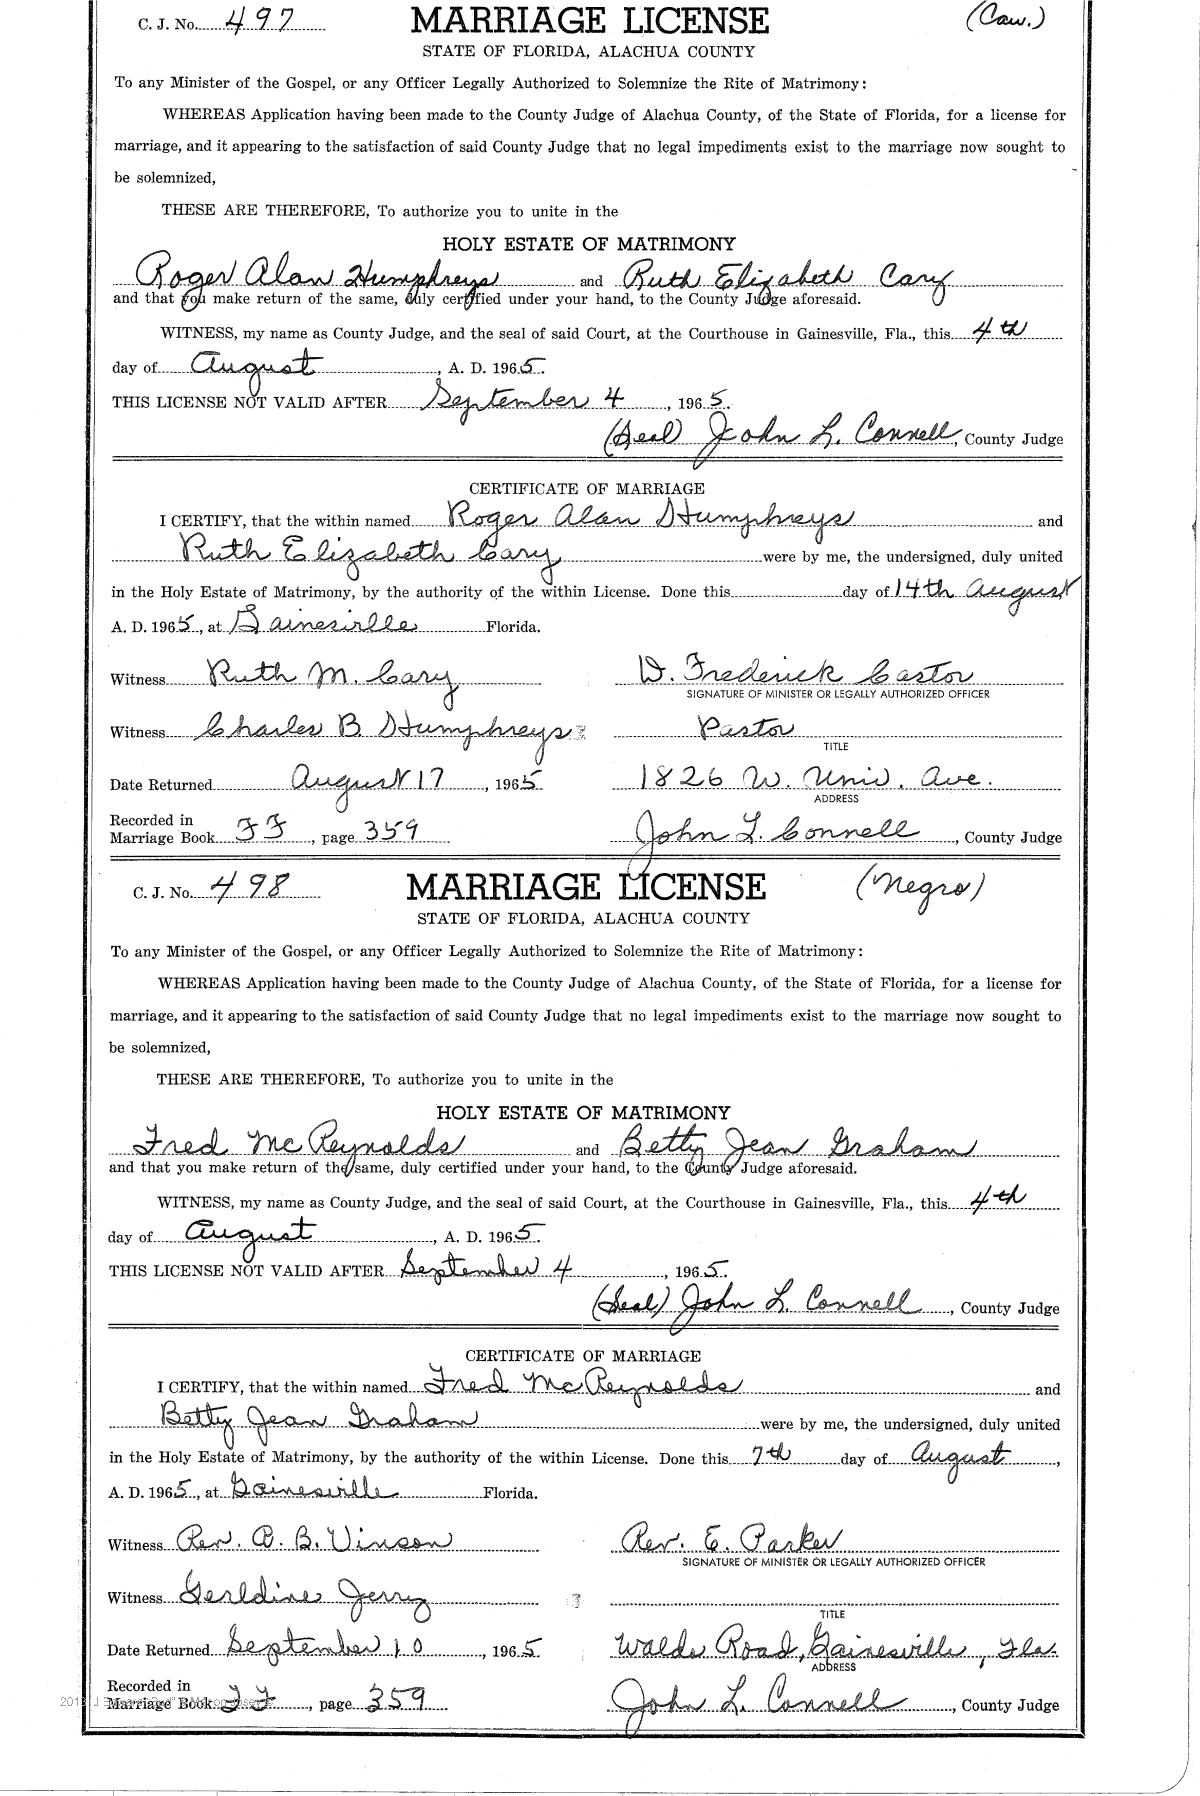 C. J. No. 497 MARRIAGE LICENSE (Cau.)
STATE OF FLORIDA, ALACHUA COUNTY
To any Minister of the Gospel, or any Officer Legally Authorized to Solemnize the Rite of Matrimony:
WHEREAS Application having been made to the County Judge of Alachua County, of the State of Florida, for a license for
marriage, and it appearing to the satisfaction of said County Judge that no legal impediments exist to the marriage now sought to
be solemnized,
THESE ARE THEREFORE, To authorize you to unite in the
HOLY ESTATE OF MATRIMONY
Roger Alan Humphreys and Ruth Elizabeth Cary
and that you make return of the same, duly certified under your hand, to the County Judge aforesaid.
WITNESS, my name as County Judge, and the seal of said Court, at the Courthouse in Gainesville, Fla., this 4th
day of August, A. D. 1965.
THIS LICENSE NOT VALID AFTER September 4, 1965.
(Seal) John L. Connell, County Judge
CERTIFICATE OF MARRIAGE
I CERTIFY, that the within named Roger Alan Humphreys and
Ruth Elizabeth Cary were by me, the undersigned, duly united
in the Holy Estate of Matrimony, by the authority of the within License. Done this day of 14th August
A. D. 1965, at Gainesville Florida.
Witness Ruth M. Cary D. Frederick Castor
SIGNATURE OF MINISTER OR LEGALLY AUTHORIZED OFFICER
Witness Charles B Humphreys Pastor
TITLE
Date Returned August 17, 1965 1826 W. Univ. Ave.
ADDRESS
Recorded in
Marriage Book FF, page 359 John L. Connell, County Judge
C. J. No. 498 MARRIAGE LICENSE (Negro)
STATE OF FLORIDA, ALACHUA COUNTY
To any Minister of the Gospel, or any Officer Legally Authorized to Solemnize the Rite of Matrimony:
WHEREAS Application having been made to the County Judge of Alachua County, of the State of Florida, for a license for
marriage, and it appearing to the satisfaction of said County Judge that no legal impediments exist to the marriage now sought to
be solemnized,
THESE ARE THEREFORE, To authorize you to unite in the
HOLY ESTATE OF MATRIMONY
Fred McReynolds and Betty Jean Graham
and that you make return of the same, duly certified under your hand, to the County Judge aforesaid.
WITNESS, my name as County Judge, and the seal of said Court, at the Courthouse in Gainesville, Fla., this 4th
day of August, A. D. 1965.
THIS LICENSE NOT VALID AFTER September 4, 1965.
(Seal) John L. Connell, County Judge
CERTIFICATE OF MARRIAGE
I CERTIFY, that the within named Fred McReynolds and
Betty Jean Graham were by me, the undersigned, duly united
in the Holy Estate of Matrimony, by the authority of the within License. Done this 7th day of August,
A. D. 1965, at Gainesville Florida.
Witness Rev. A. B. Vinson Rev. E. Parker
SIGNATURE OF MINISTER OR LEGALLY AUTHORIZED OFFICER
Witness Gerldine Jerry
TITLE
Date Returned September 10, 1965 Waldo Road, Gainesville, Fla.
ADDRESS
Recorded in
Marriage Book FF, page 359 John L. Connell, County Judge